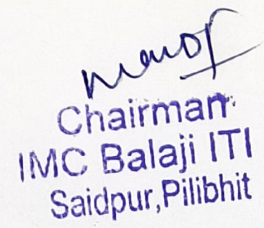 Chairman
IMC Balaji ITI
Saidpur,Pilibhit